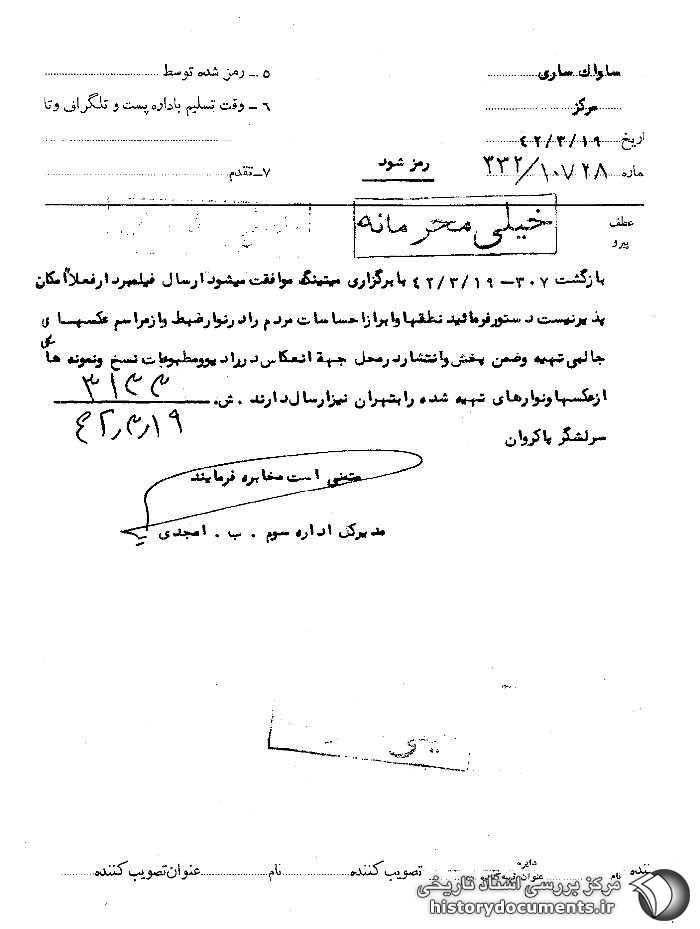 ساواك ساری
۵ ــ رمز شده توسط
مرکز
۶ ــ وقت تسلیم باداره پست و تلگرافی وتا
اریخ ۴۲/۳/۱۹
ماره ۳۳۲/۱۰۷۲۸
رمز شود
۷ــ تقدم
عطف
پیرو
خیلی محرمانه
بازگشت ۳۰۷ــ ۴۲/۳/۱۹ با برگزاری میتینگ موافقت میشود ارسال فیلمبردار فعلاً امکان
پذیر نیست دستور فرمائید نطقها و ابراز احساسات مردم را در نوار ضبط و از مراسم عکسهای
جالبی تهیه و ضمن پخش و انتشار در محل جهة انعکاس در رادیو و مطبوعات نسخ و نمونه ها
از عکسها و نوارهای تهیه شده را بتهران نیز ارسال دارند . ش.
۳۱۳۳
۴۲/۳/۱۹
سرلشگر پاکروان
متمنی است مخابره فرمایند
مدیرکل اداره سوم . ب . امجدی
دایره
نده نام عنوان تهیه کننده تصویب کننده نام عنوان تصویب کننده
مرکز بررسی اسناد تاریخی
historydocuments.ir